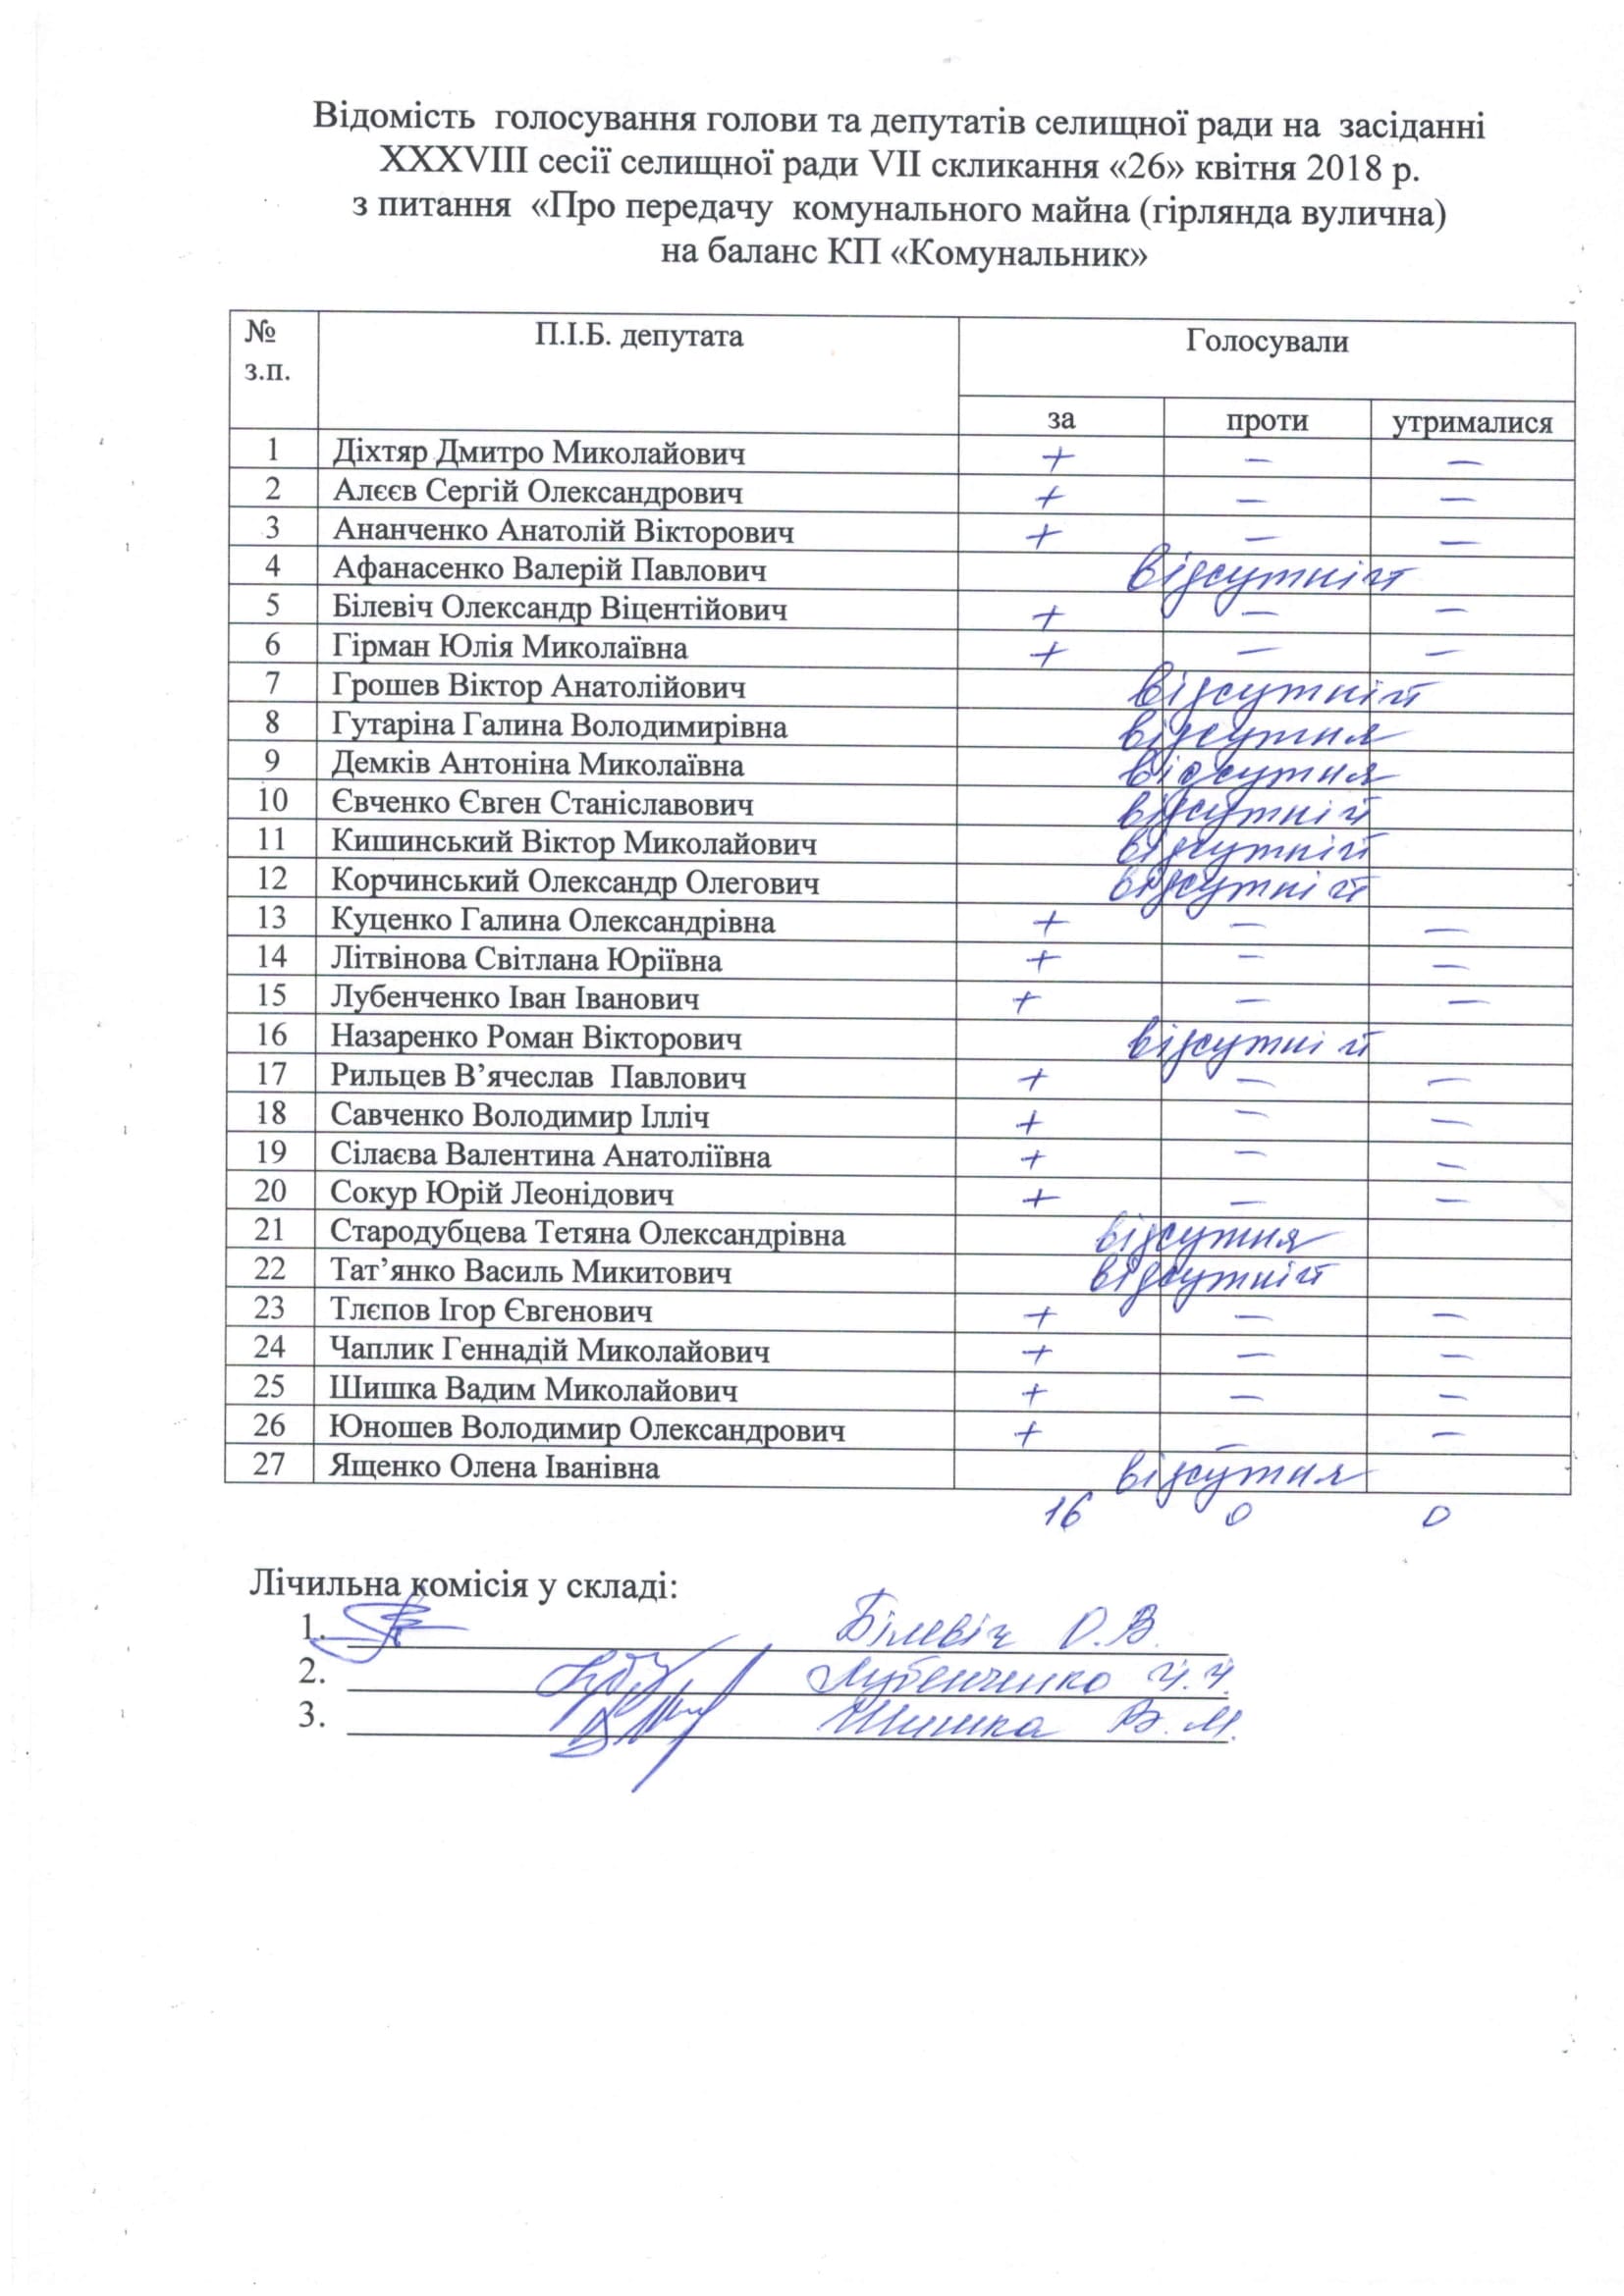 Відомість голосування голови та депутатів селищної ради на засіданні
XXXVIII сесії селищної ради VII скликання «26» квітня 2018 р.
з питання «Про передачу комунального майна (гірлянда вулична)
на баланс КП «Комунальник»
№ з.п. П.І.Б. депутата Голосували
за проти утрималися
1 Діхтяр Дмитро Миколайович + – –
2 Алєєв Сергій Олександрович + – –
3 Ананченко Анатолій Вікторович + – –
4 Афанасенко Валерій Павлович відсутній
5 Білевіч Олександр Віцентійович + – –
6 Гірман Юлія Миколаївна + – –
7 Грошев Віктор Анатолійович відсутній
8 Гутаріна Галина Володимирівна відсутня
9 Демків Антоніна Миколаївна відсутня
10 Євченко Євген Станіславович відсутній
11 Кишинський Віктор Миколайович відсутній
12 Корчинський Олександр Олегович відсутній
13 Куценко Галина Олександрівна + – –
14 Літвінова Світлана Юріївна + – –
15 Лубенченко Іван Іванович + – –
16 Назаренко Роман Вікторович відсутній
17 Рильцев В’ячеслав Павлович + – –
18 Савченко Володимир Ілліч + – –
19 Сілаєва Валентина Анатоліївна + – –
20 Сокур Юрій Леонідович + – –
21 Стародубцева Тетяна Олександрівна відсутня
22 Тат’янко Василь Микитович відсутній
23 Тлєпов Ігор Євгенович + – –
24 Чаплик Геннадій Миколайович + – –
25 Шишка Вадим Миколайович + – –
26 Юношев Володимир Олександрович + – –
27 Ященко Олена Іванівна відсутня
16 0 0
Лічильна комісія у складі:
1. Білевіч О.В.
2. Лубенченко І.І.
3. Шишка В.М.